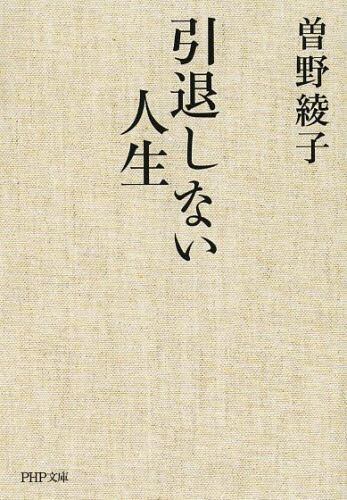 曽野綾子
引退しない
人生
PHP文庫